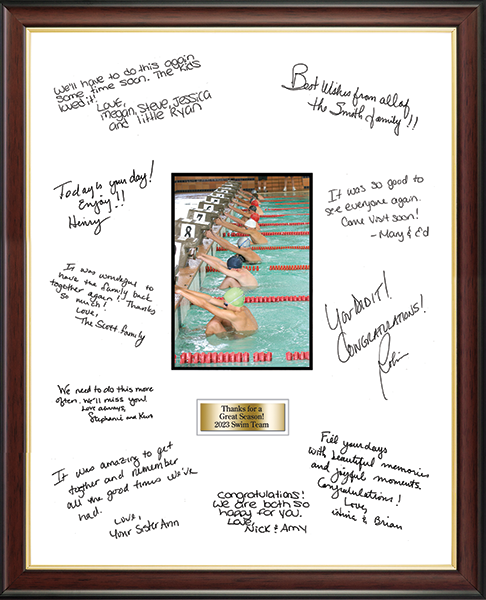 We'll have to do this again
some time soon. The kids
loved it!
Love,
megan, Steve, Jessica
and little Ryan
Best Wishes from all of
the Smith family!!
Today is your day!
Enjoy!!
Henry
It was so good to
see everyone again.
Come visit soon!
- Mary & Ed
It was wonderful to
have the family back
together again! Thanks
so much!
Love,
The Scott Family
YOU DID IT!
CONGRATULATIONS!
Robin
We need to do this more
often. We'll miss you!
Love always,
Stephanie and Kurt
Thanks for a
Great Season!
2023 Swim Team
It was amazing to get
together and remember
all the good times we've
had.
Love,
Your Sister Ann
Congratulations!
We are both so
happy for you.
Love,
Nick & Amy
Fill your days
with beautiful memories
and joyful moments.
Congratulations!
Love,
& Brian